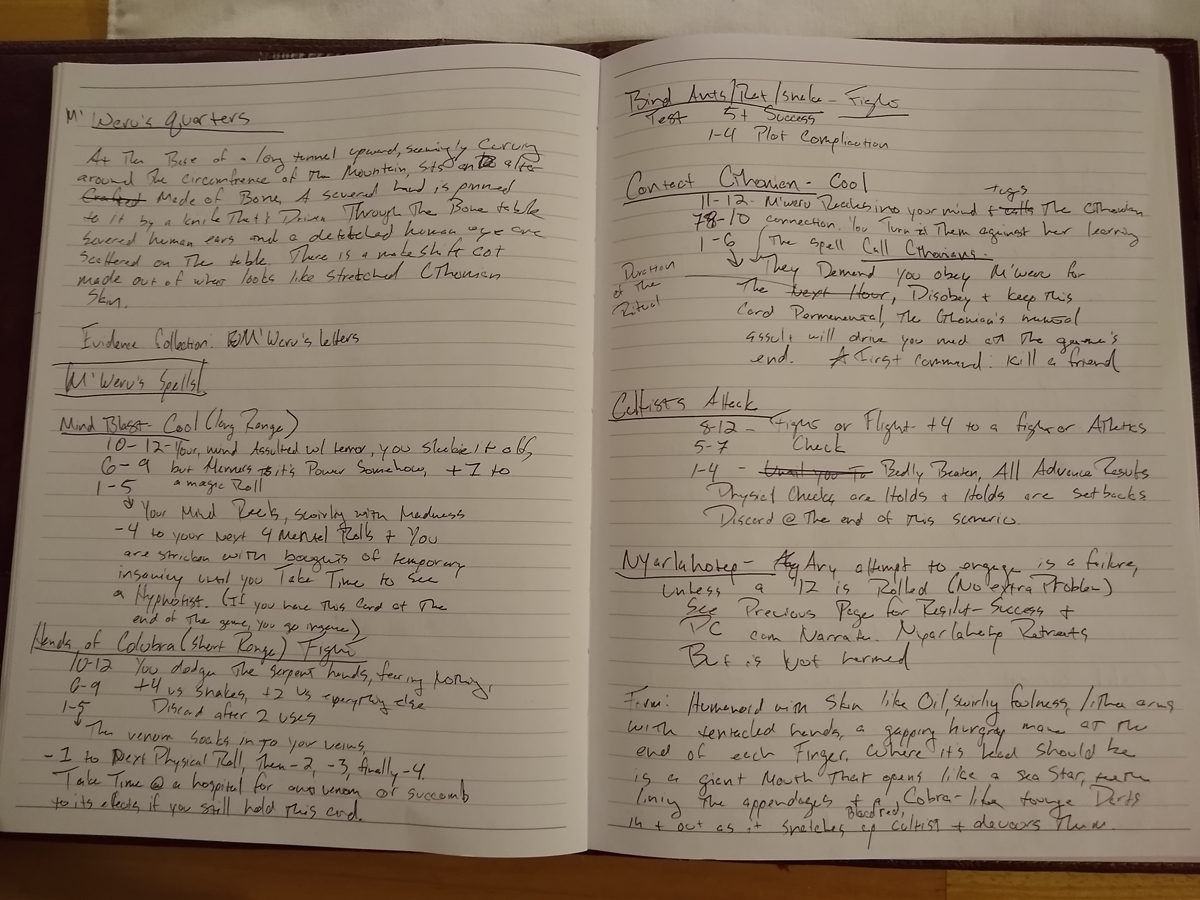 M'Weru's quarters
At The Base of a long tunnel upward, seemingly Curving
around The circumfrence of The Mountain, sits an alter
Crafted Made of Bone. A severed hand is pinned
to it by a knife That's Driven Through The Bone table
Severed human ears and a detatched human eye are
Scattered on The table. There is a makeshift cot
made out of what looks like stretched Cthonian
Skin.
Evidence Collection: M'Weru's letters
M'Weru's Spells
Mind Blast - Cool (long Range)
10-12 - Your mind Assulted w/ terror, you shake it off,
6-9 but Harness it's Power Somehow, +1 to
1-5 a magic Roll
↓ Your Mind Reels, swirly with Madness
-4 to your next 4 Mental Rolls + You
are stricken with bouguts of temporary
insanity until you Take Time to See
a Hypnotist. (If you have this Card at The
end of The game, you go insane)
Hands of Colubra (Short Range) Fight
10-12 You dodge The serpent hands, fearing Nothing,
6-9 +4 vs snakes, +2 vs everything else
1-5 Discard after 2 uses
↓ The venom soaks in to your veins,
-1 to Next Physical Roll, Then -2, -3, finally -4.
Take Time @ a hospital for anti venom or succomb
to its effects if you still hold This card.
Bind Ants/Rat/Snake - Fight
Test 5+ Success
1-4 Plot Complication
Contact Cthonian - Cool
11-12 - M'Weru Reaches into your mind + calls tugs The Cthonian
78-10 connection. You Turn it Them against her learning
1-6 The spell Call Cthonians.
↓ They Demand you obey M'Weru for
The Next Hour, Disobey + keep this
Duration
of The
Ritual
Card Permenental, The Cthonian's mental
assult will drive you mad at The game's
end. First command: Kill a friend
Cultists Attack
8-12 - Fight or Flight - +4 to a fight or Athletics
5-7 Check
1-4 - Until you To Badly Beaten, All Advance Results
Physical Checks are Holds + Holds are setbacks
Discard @ The end of This scenerio.
Nyarlahotep - Any attempt to engage is a failure,
unless a 12 is Rolled (No extra Problem)
See Previous Page for Result - Success +
PC can Narrate. Nyarlahotep Retreats
But is Not harmed
Form: Humanoid with Skin like Oil, swirly foulness, lithe arms
with tentacled hands, a gapping hungry maw at The
end of each Finger. Where it's head should be
is a giant Mouth That opens like a sea Star, teeth
lining The appendages + a Blood red, Cobra-like tounge Darts
in + out as it snatches up Cultist + devours Them.